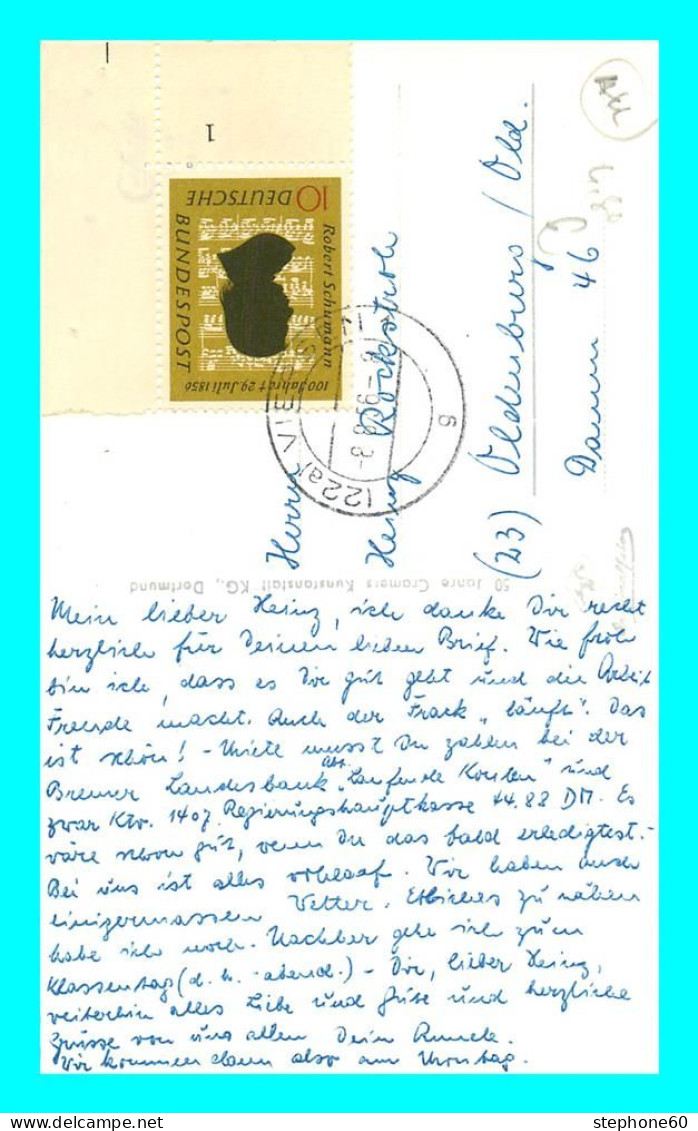 1
10 DEUTSCHE
BUNDESPOST
Robert Schumann
100. Jahr † 29. Juli 1856
(22a) VIERSEN
6
Herrn
Heinz Rockstroh
(23) Oldenburg / Old.
Damm 46
50 Jahre Cramers Kunstanstalt KG., Dortmund
Mein lieber Heinz, ich danke Dir recht
herzlich für Deinen lieben Brief. Wie froh
bin ich, dass es Dir gut geht und die Arbeit
Freude macht. Auch der Frack „läuft“. Das
ist schön! – Miete musst Du zahlen bei der
Bremer Landesbank Abt. „Laufende Konten“ und
zwar Kto. 1407 Regierungshauptkasse 44.88 DM. Es
wäre schon gut, wenn Du das bald erledigtest. –
Bei uns ist alles wohlauf. Wir haben auch
einigermassen Wetter. Etliches zu nähen
habe ich noch. Nachher gehe ich zum
Klassentag (d. h. -abend.) – Dir, lieber Heinz,
weiterhin alles Liebe und Gute und herzliche
Grüsse von uns allen Dein
Wir kommen dann also am
stephone60